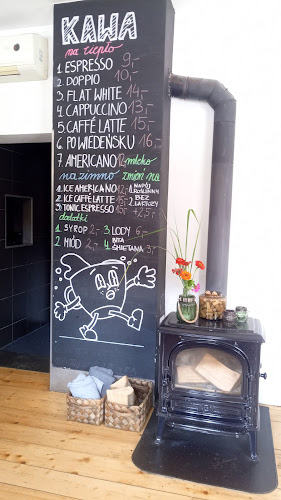 KAWA
na ciepło
1. ESPRESSO 9,-
2. DOPPIO 10,-
3. FLAT WHITE 14,-
4. CAPPUCCINO 13,-
5. CAFFÉ LATTE 15,-
6. PO WIEDEŃSKU 16,-
7. AMERICANO 12 mleko
na zimno zmiana
1. ICE AMERICANO 12,- NAPÓJ
2. ICE CAFFÉ LATTE 15,- ROŚLINNY/
3. TONIC ESPRESSO 15,- BEZ LAKTOZY +2,5,-
dodatki
1. SYROP 2,- 3. LODY 6,-
2. MIÓD 2,- 4. BITA ŚMIETANA 3,-